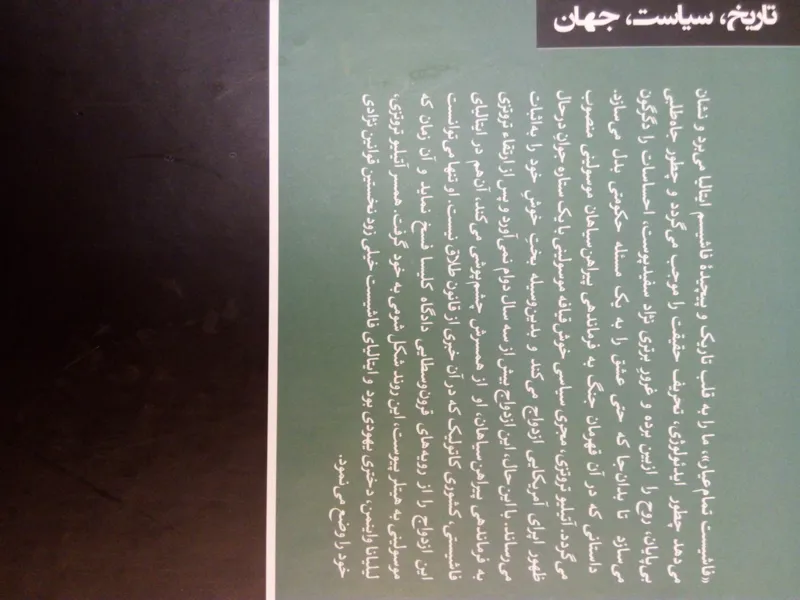 تاریخ، سیاست، جهان
«فاشیست تمام‌عیار»، ما را به قلب تاریک و پیچیدهٔ فاشیسم ایتالیا می‌برد و نشان
می‌دهد چطور ایدئولوژی، تحریف حقیقت را موجب می‌گردد و چطور جاه‌طلبی
بی‌پایان، روح را ازبین برده و غرورِ برتری نژاد سفیدپوست، احساسات را دگرگون
می‌سازد تا بدان‌جا که حتی عشق را به یک مسئله حکومتی بدل می‌سازد.
داستانی که در آن قهرمان جنگ به فرماندهی پیراهن‌سیاهان موسولینی منصوب
می‌گردد. آتیلیو تروتزی، مجری سیاسی خوش‌قیافه موسولینی با یک ستاره جوان درحال
ظهور اپرای آمریکایی ازدواج می‌کند و بدین‌وسیله بختِ خوشِ خود را به‌اثبات
می‌رساند. با این حال، این ازدواج بیش از سه سال دوام نمی‌آورد و پس از ارتقاء تروتزی
به فرماندهی پیراهن‌سیاهان، او از همسرش چشم‌پوشی می‌کند، آن‌هم در ایتالیای
فاشیستی، کشوری کاتولیک که در آن خبری از قانون طلاق نیست. او تنها می‌توانست
این ازدواج را از رویه‌های قرون‌وسطایی دادگاه کلیسا فسخ نماید و آن زمان که
موسولینی به هیتلر پیوست، این روند شکل شومی به خود گرفت. همسر آتیلیو تروتزی،
لیلیانا واینمن، دختری یهودی بود و ایتالیای فاشیست خیلی زود نخستین قوانین نژادی
خود را وضع می‌نمود.